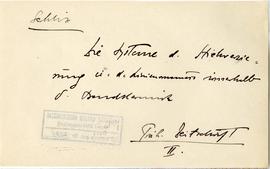 Schliz
Die Systeme d. Stichverzie-
rung u. d. Linienornamentik innerhalb
d. Bandkeramik
Präh. Zeitschrift
II.